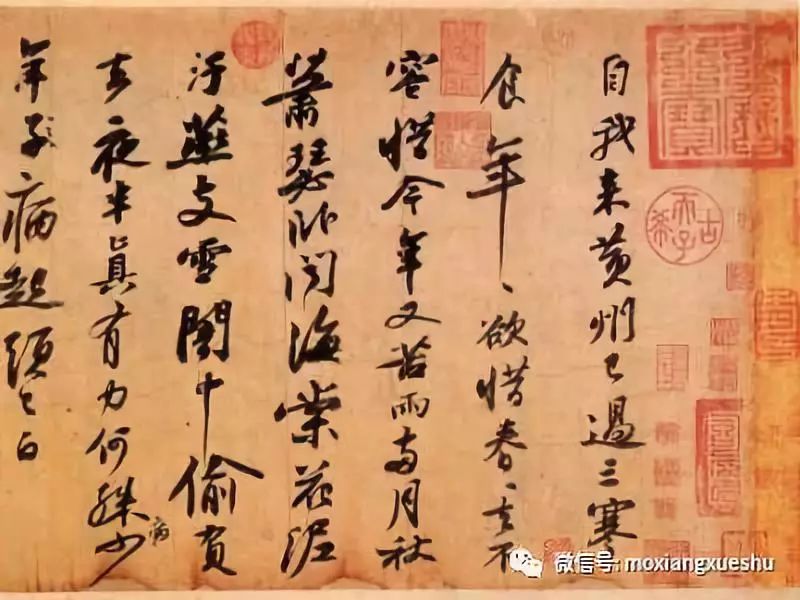 自我来黄州已過三寒
食年、欲惜春、去不
容惜今年又苦雨兩月秋
蕭瑟卧聞海棠花泥
汙燕支雪闇中偷負
去夜半真有力何殊少
病
年子、病起頭已白
古希天子
微信号: moxiangxueshu